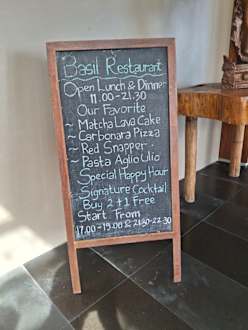 Basil Restaurant
Open Lunch & Dinner
11.00-21.30
Our Favorite
~ Matcha Lava Cake
~ Carbonara Pizza
~ Red Snapper
~ Pasta Aglio Ulio
Special Happy Hour
Signature Cocktail
Buy 2+1 Free
Start From
17.00-19.00 & 21.30-22.30